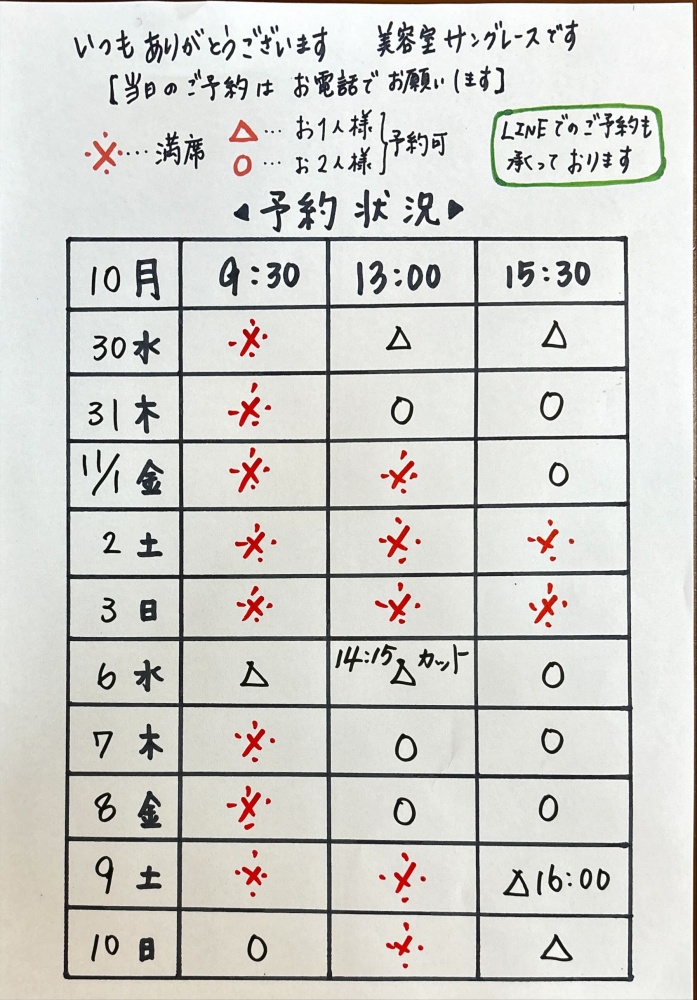 いつもありがとうございます 美容室サングレースです
[当日のご予約は お電話で お願いします]
※…満席 △…お1人様 ○…お2人様 }予約可
LINEでのご予約も
承っております
◀予約状況▶
10月 9:30 13:00 15:30
30水 ※ △ △
31木 ※ ○ ○
11/1金 ※ ※ ○
2土 ※ ※ ※
3日 ※ ※ ※
6水 △ 14:15△カット ○
7木 ※ ○ ○
8金 ※ ○ ○
9土 ※ ※ △16:00
10日 ○ ※ △